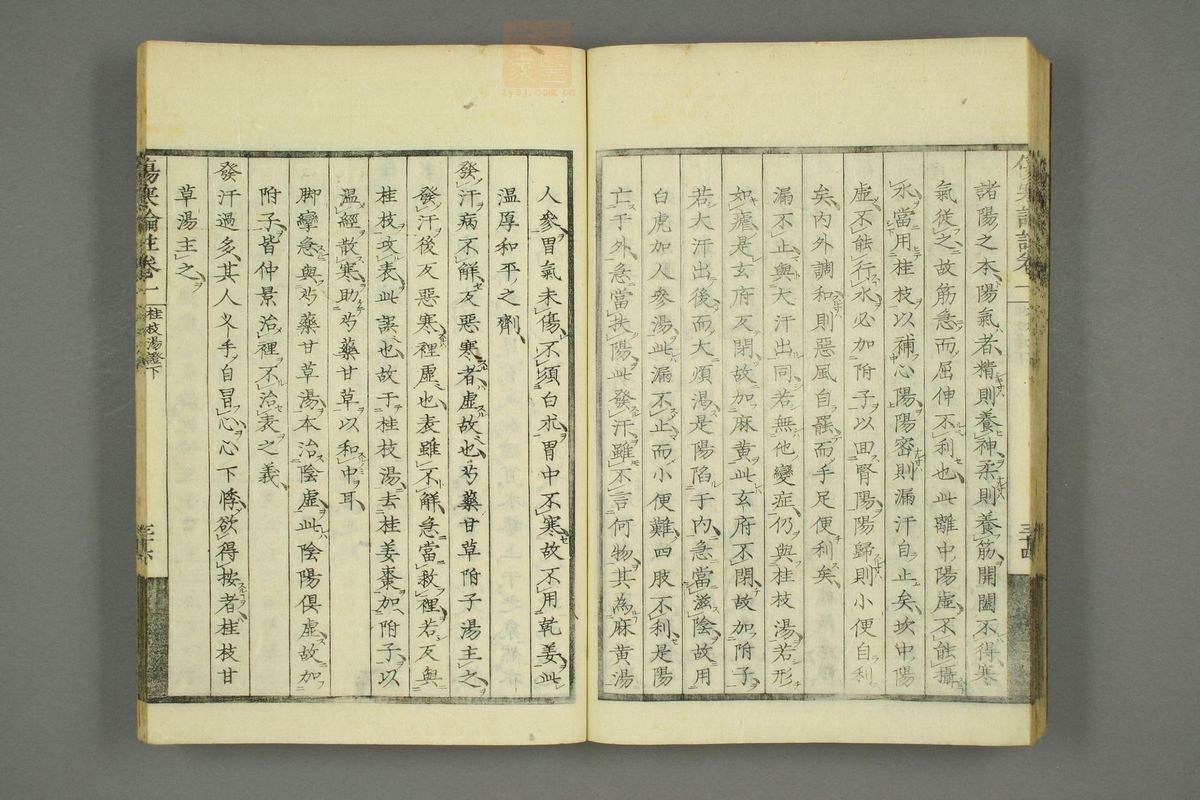 諸陽之本陽氣者精則養神柔則養筋開闔不得寒
氣從之故筋急而屈伸不利也此離中陽虛不能攝
水當用桂枝以補心陽陽密則漏汗自止矣坎中陽
虛不能行水必加附子以回腎陽陽歸則小便自利
矣内外調和則惡風自罷而手足便利矣
漏不止與大汗出同若無他變症仍與桂枝湯若形
如瘧是玄府反閉故加麻黃此玄府不閉故加附子
若大汗出後而大煩渴是陽陷于内急當滋陰故用
白虎加人參湯此漏不止而小便難四肢不利是陽
亡于外急當扶陽此發汗雖不言何物其為麻黃湯
三十四
人參胃氣未傷不須白朮胃中不寒故不用乾姜此
溫厚和平之劑
發汗病不解反惡寒者虛故也芍藥甘草附子湯主之
發汗後反惡寒裡虛也表雖不解急當救裡若反與
桂枝攻表此誤也故于桂枝湯去桂姜棗加附子以
溫經散寒助芍藥甘草以和中耳
脚攣急與芍藥甘草湯本治陰虛此陰陽俱虛故加
附子皆仲景治裡不治表之義
發汗過多其人叉手自冒心心下悸欲得按者桂枝甘
草湯主之
傷寒論註卷一 桂枝湯證下
三十六
zysj.com.cn